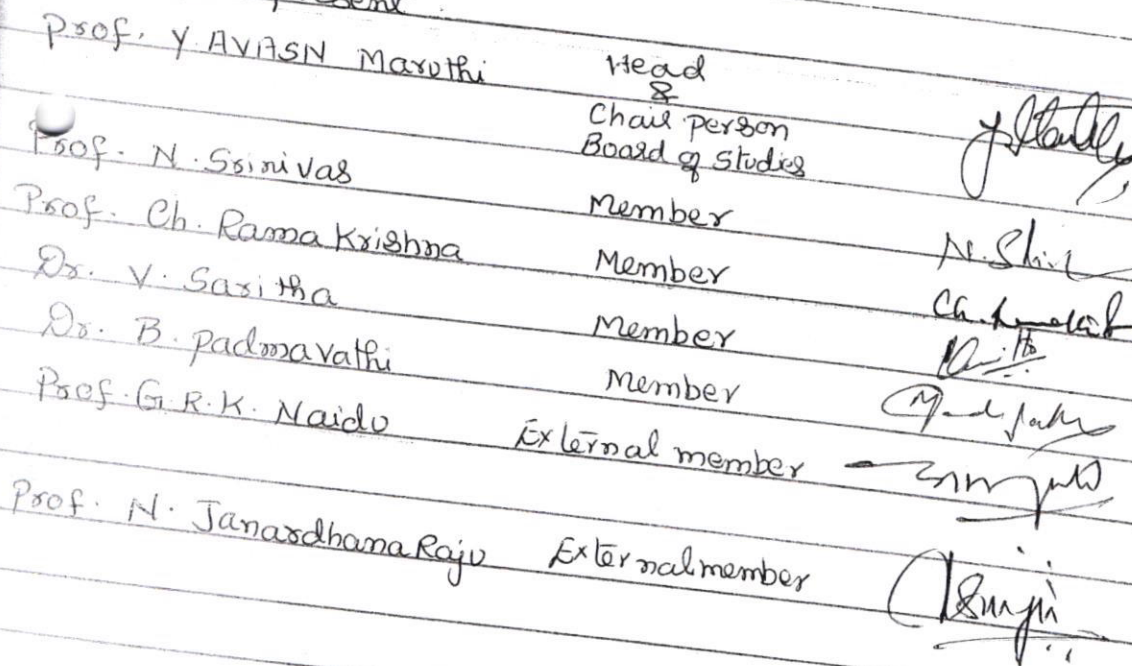 Prof. Y. AVASN Maruthi Head
&
Chair person
Board of Studies
Prof. N. Srinivas Member
Prof. Ch. Rama Krishna Member
Dr. V. Saritha Member
Dr. B. Padmavathi Member
Prof. G.R.K. Naidu External member
Prof. N. Janardhana Raju External member